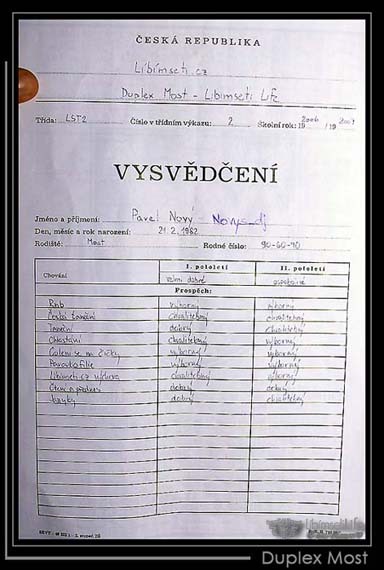 ČESKÁ REPUBLIKA
Libimseti.cz
Duplex Most - Libimseti Life
Třída: LST2 Číslo v třídním výkazu: 2 Školní rok: 19 2006 / 19 2007
VYSVĚDČENÍ
Jméno a příjmení: Pavel Nový - Novys-dj
Den, měsíc a rok narození: 21.2.1982
Rodiště: Most Rodné číslo: 90-60-90
I. pololetí II. pololetí
Chování velmi dobré uspokojivé
Prospěch:
Rnb výborný výborný
chvalitebný chvalitebný
Tančení dobrý chvalitebný
Chlastání chvalitebný výborný
Balení se na výborný výborný
výborný výborný
Libimseti.cz výchova chvalitebný výborný
Čtení a dobrý dobrý
Jazyky dobrý chvalitebný
LibimSetiLife
Duplex Most